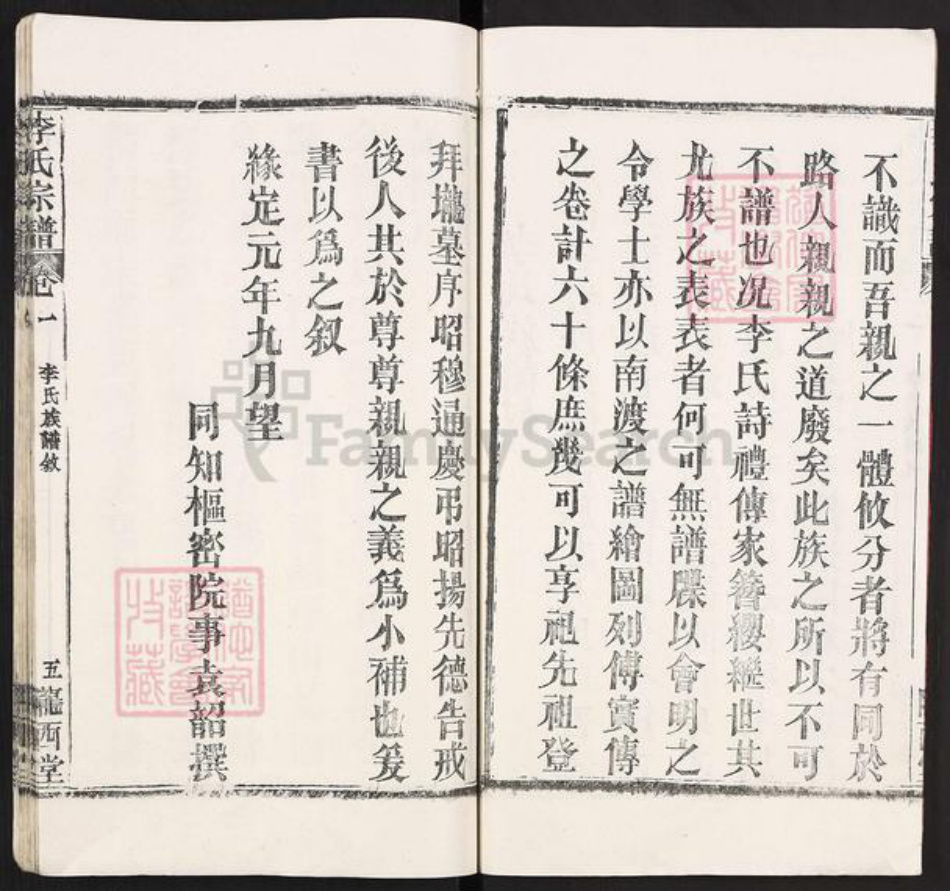 不識而吾親之一體攸分者將有同於
路人親親之道廢矣此族之所以不可
不譜也况李氏詩禮傳家簪纓繼世其
尤族之表表者何可無譜牒以會明之
令學士亦以南渡之譜繪圖列傳實傳
之卷計六十條庶幾可以享祖先祖登
拜壠墓序昭穆通慶弔昭揚先德告戒
後人其於尊尊親親之義爲小補也爰
書以爲之叙
緣定元年九月望
同知樞密院事袁韶撰
李氏宗譜 卷一 李氏族譜敘 五 隴西堂
FamilySearch